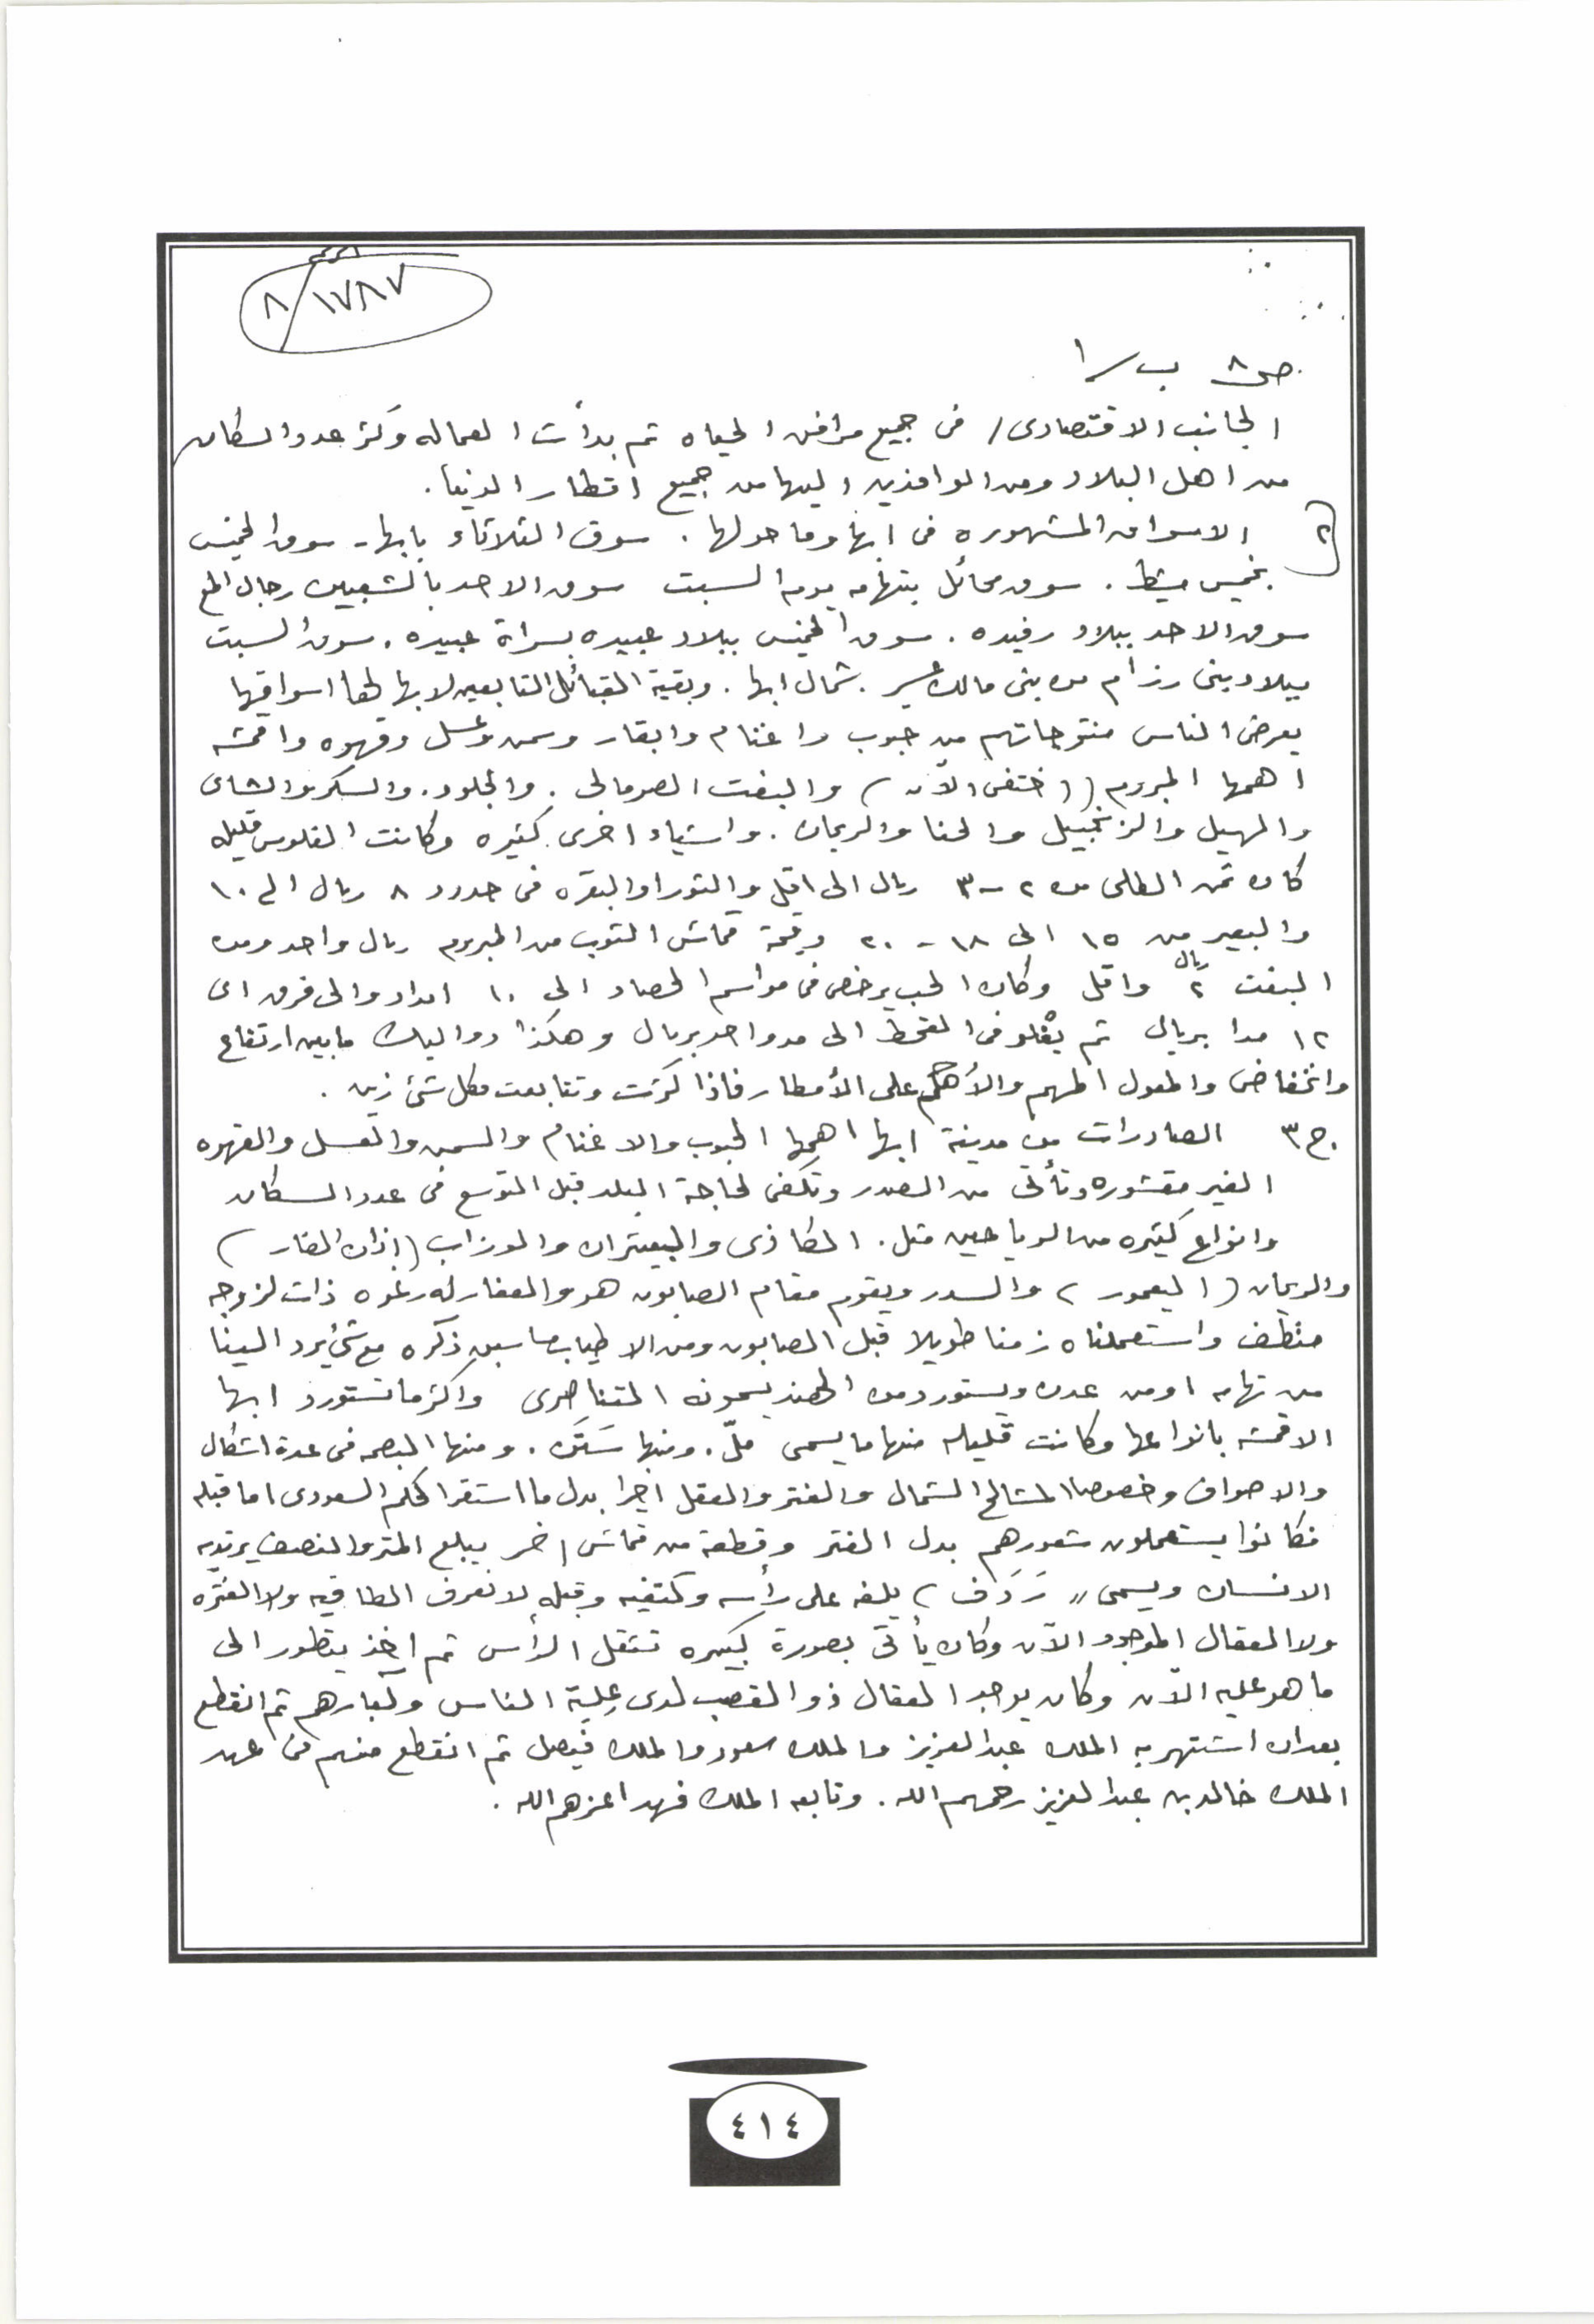 الرقم
٨/١٧٨٧
ص ٨ ب/١
الجانب الاقتصادى/ فى جميع مرافق الحياه ثم بدأت العماله وكثر عدد السكان
من اهل البلاد ومن الوافدين اليها من جميع اقطار الدنيا.
ج٢ الاسواق المشهوره فى ابها وما حولها. سوق الثلاثاء بابها - سوق الخميس
بخميس مشيط. سوق محائل بتهامه يوم السبت سوق الاحد بالشعبين رجال المع
سوق الاحد ببلاد رفيده. سوق الخميس ببلاد عبيده بسراة عبيده. سوق السبت
ببلاد بنى رزام من بنى مالك عسير. شمال ابها. وبقية القبائل التابعين لابها لها اسواقها
يعرض الناس منتوجاتهم من حبوب واغنام وابقار وسمن وعسل وقهوه واقمشه
اهمها المبروم ((اختفى الآن) والبفت الصومالى. والجلود. والسكر والشاى
والهيل والزنجبيل والحنا والريحان. واشياء اخرى كثيره وكانت الفلوس قليله
كان ثمن الطلى من ٢-٣ ريال الى اقل والثور او البقره فى حدود ٨ ريال الى ١٠
والبعير من ١٥ الى ١٨ - ٢٠ وقيمة قماش الثوب من المبروم ريال واحد ومن
البفت ٢ ريال واقل وكان الحب يرخص فى مواسم الحصاد الى ١٠ امداد والى فرق اى
١٢ مدا بريال ثم يغلو فى القحط الى مد واحد بريال وهكذا دواليك ما بين ارتفاع
وانخفاض والمعول المهم والأهم على الأمطار فاذا كثرت وتتابعت فكل شئ زين.
ج٣ الصادرات من مدينة ابها اهمها الحبوب والاغنام والسمن والعسل والقهوه
الغير مقشوره وتأتى من الصدر وتكفى لحاجة البلد قبل التوسع فى عدد السكان
وانواع كثيره من الرياحين مثل. الكاذى والبعيثران والوزاب (اذان الفار)
والريحان (اليعمور) والسدر ويقوم مقام الصابون هو والعفار له رغوه ذات لزوجه
منظف واستعملناه زمنا طويلا قبل الصابون ومن الاطياب ما سبق ذكره مع شئ يرد الينا
من تهامه او من عدن ويستورد من الهند يسمونه التناصرى واكثر ما تستورد ابها
الاقمشه بانواعها وكانت قليله منها ما يسمى ملّ. ومنها سَتَن. ومنها المبصمه فى عدة اشكال
والاصواف وخصوصا المشالح الشمال والغتر والعقل اخيرا بدل ما استقر الحكم السعودى اما قبله
فكانوا يستعملون شعورهم بدل الغتر وقطعة من قماش اخر يبلغ المتر والنصف يرتديه
الانسان ويسمى ,, رَدَف ) يلفه على رأسه وكتفيه وقبله لا نعرف الطاقيه ولا الغتره
ولا العقال الموجود الآن وكان يأتى بصورة كبيره تثقل الرأس ثم اخذ يتطور الى
ما هو عليه الآن وكان يوجد العقال ذو القصب لدى عِلية الناس وكبارهم ثم انقطع
بعد ان اشتهر به الملك عبدالعزيز والملك سعود والملك فيصل ثم انقطع منهم فى عهد
الملك خالد بن عبدالعزيز رحمهم الله. وتابعه الملك فهد اعزهم الله.
٤١٤